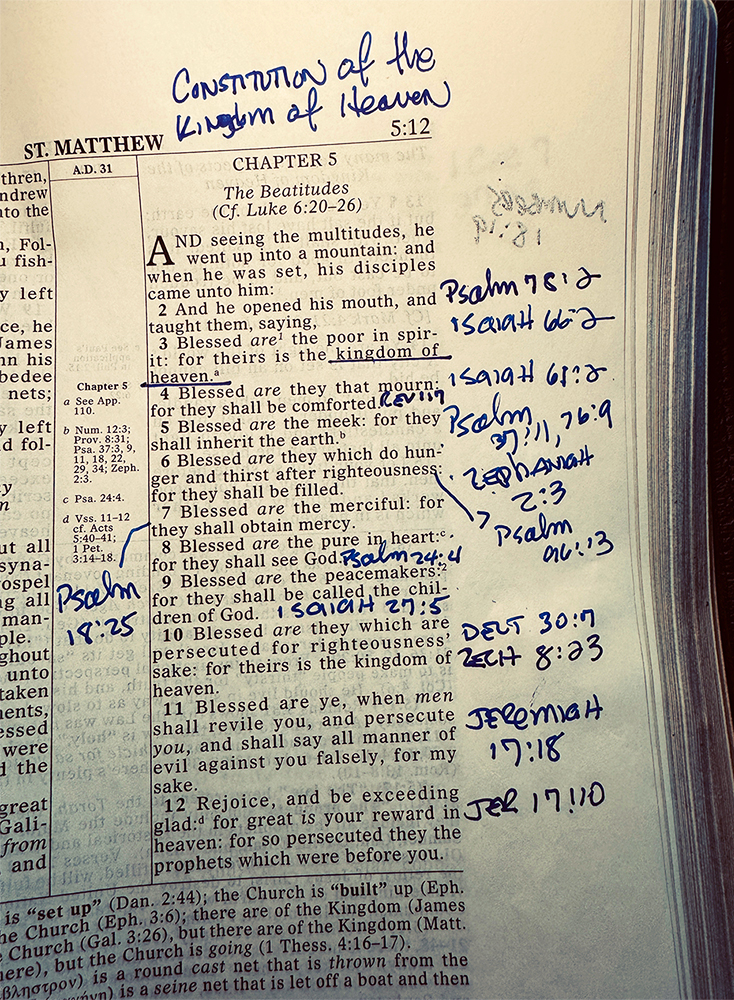 CONSTITUTION of the
Kingdom of HEAVEN
ST. MATTHEW
5:12
thren,
ndrew
to the
n, Fol-
u fish-
y left
ce, he
James
nn his
bedee
nets;
y left
d fol-
y
n
ut all
syna-
ospel
ng all
man-
ple.
ghout
unto
taken
nents,
essed
were
d the
great
Gali-
from
and
A.D. 31
Chapter 5
a See App.
110.
b Num. 12:3;
Prov. 8:31;
Psa. 37:3, 9,
11, 18, 22,
29, 34; Zeph.
2:3.
c Psa. 24:4.
d Vss. 11–12
cf. Acts
5:40–41;
1 Pet.
3:14–18.
Psalm
18:25
CHAPTER 5
The Beatitudes
(Cf. Luke 6:20–26)
AND seeing the multitudes, he
went up into a mountain: and
when he was set, his disciples
came unto him:
2 And he opened his mouth, and
taught them, saying,
3 Blessed are¹ the poor in spir-
it: for theirs is the kingdom of
heaven.ᵃ
4 Blessed are they that mourn:
for they shall be comforted. REV
5 Blessed are the meek: for they
shall inherit the earth.ᵇ
6 Blessed are they which do hun-
ger and thirst after righteousness:
for they shall be filled.
7 Blessed are the merciful: for
they shall obtain mercy.
8 Blessed are the pure in heart:ᶜ
for they shall see God. Psalm 24:4
9 Blessed are the peacemakers:²
for they shall be called the chil-
dren of God. ISAIAH 27:5
10 Blessed are they which are
persecuted for righteousness’
sake: for theirs is the kingdom of
heaven.
11 Blessed are ye, when men
shall revile you, and persecute
you, and shall say all manner of
evil against you falsely, for my
sake.
12 Rejoice, and be exceeding
glad:ᵈ for great is your reward in
heaven: for so persecuted they the
prophets which were before you.
Psalm 78:2
ISAIAH 66:2
ISAIAH 61:2
Psalm
37:11, 76:9
ZEPHANIAH
2:3
Psalm
96:13
DEUT 30:7
ZECH 8:23
JEREMIAH
17:18
JER 17:10
is “set up” (Dan. 2:44); the Church is “built” up (Eph.
he Church (Eph. 3:6); there are of the Kingdom (James
Church (Gal. 3:26), but there are of the Kingdom (Matt.
here), but the Church is going (1 Thess. 4:16–17).
βληστρον) is a round cast net that is thrown from the
is a seine net that is let off a boat and then